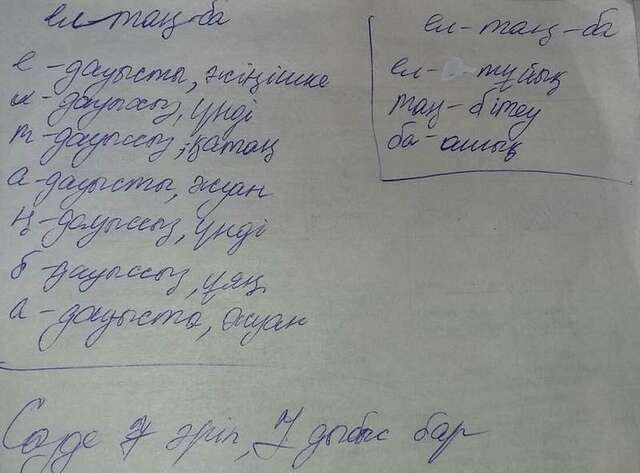 ел-таң-ба
е - дауысты, жіңішке
л - дауыссыз, үнді
т - дауыссыз, қатаң
а - дауысты, жуан
ң - дауыссыз, үнді
б - дауыссыз, ұяң
а - дауысты, жуан
ел-таң-ба
ел - тұйық
таң - бітеу
ба - ашық
Сөзде 7 әріп, 7 дыбыс бар